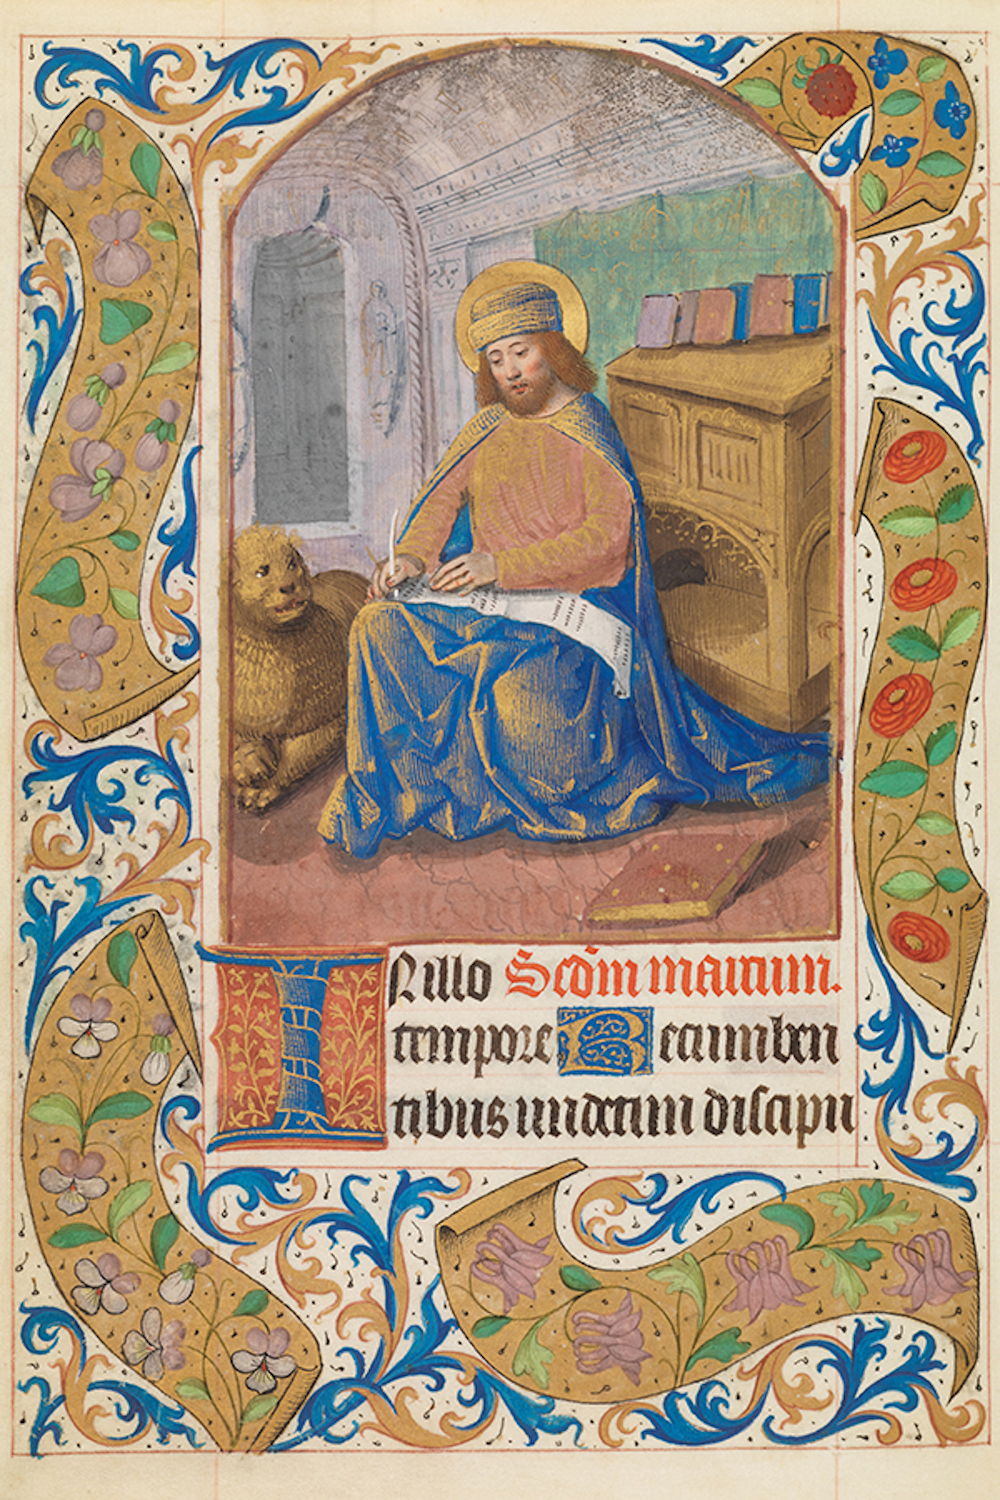 INillo Scdm̄ marcum.
tempore Recumben
tibus undecim discipu